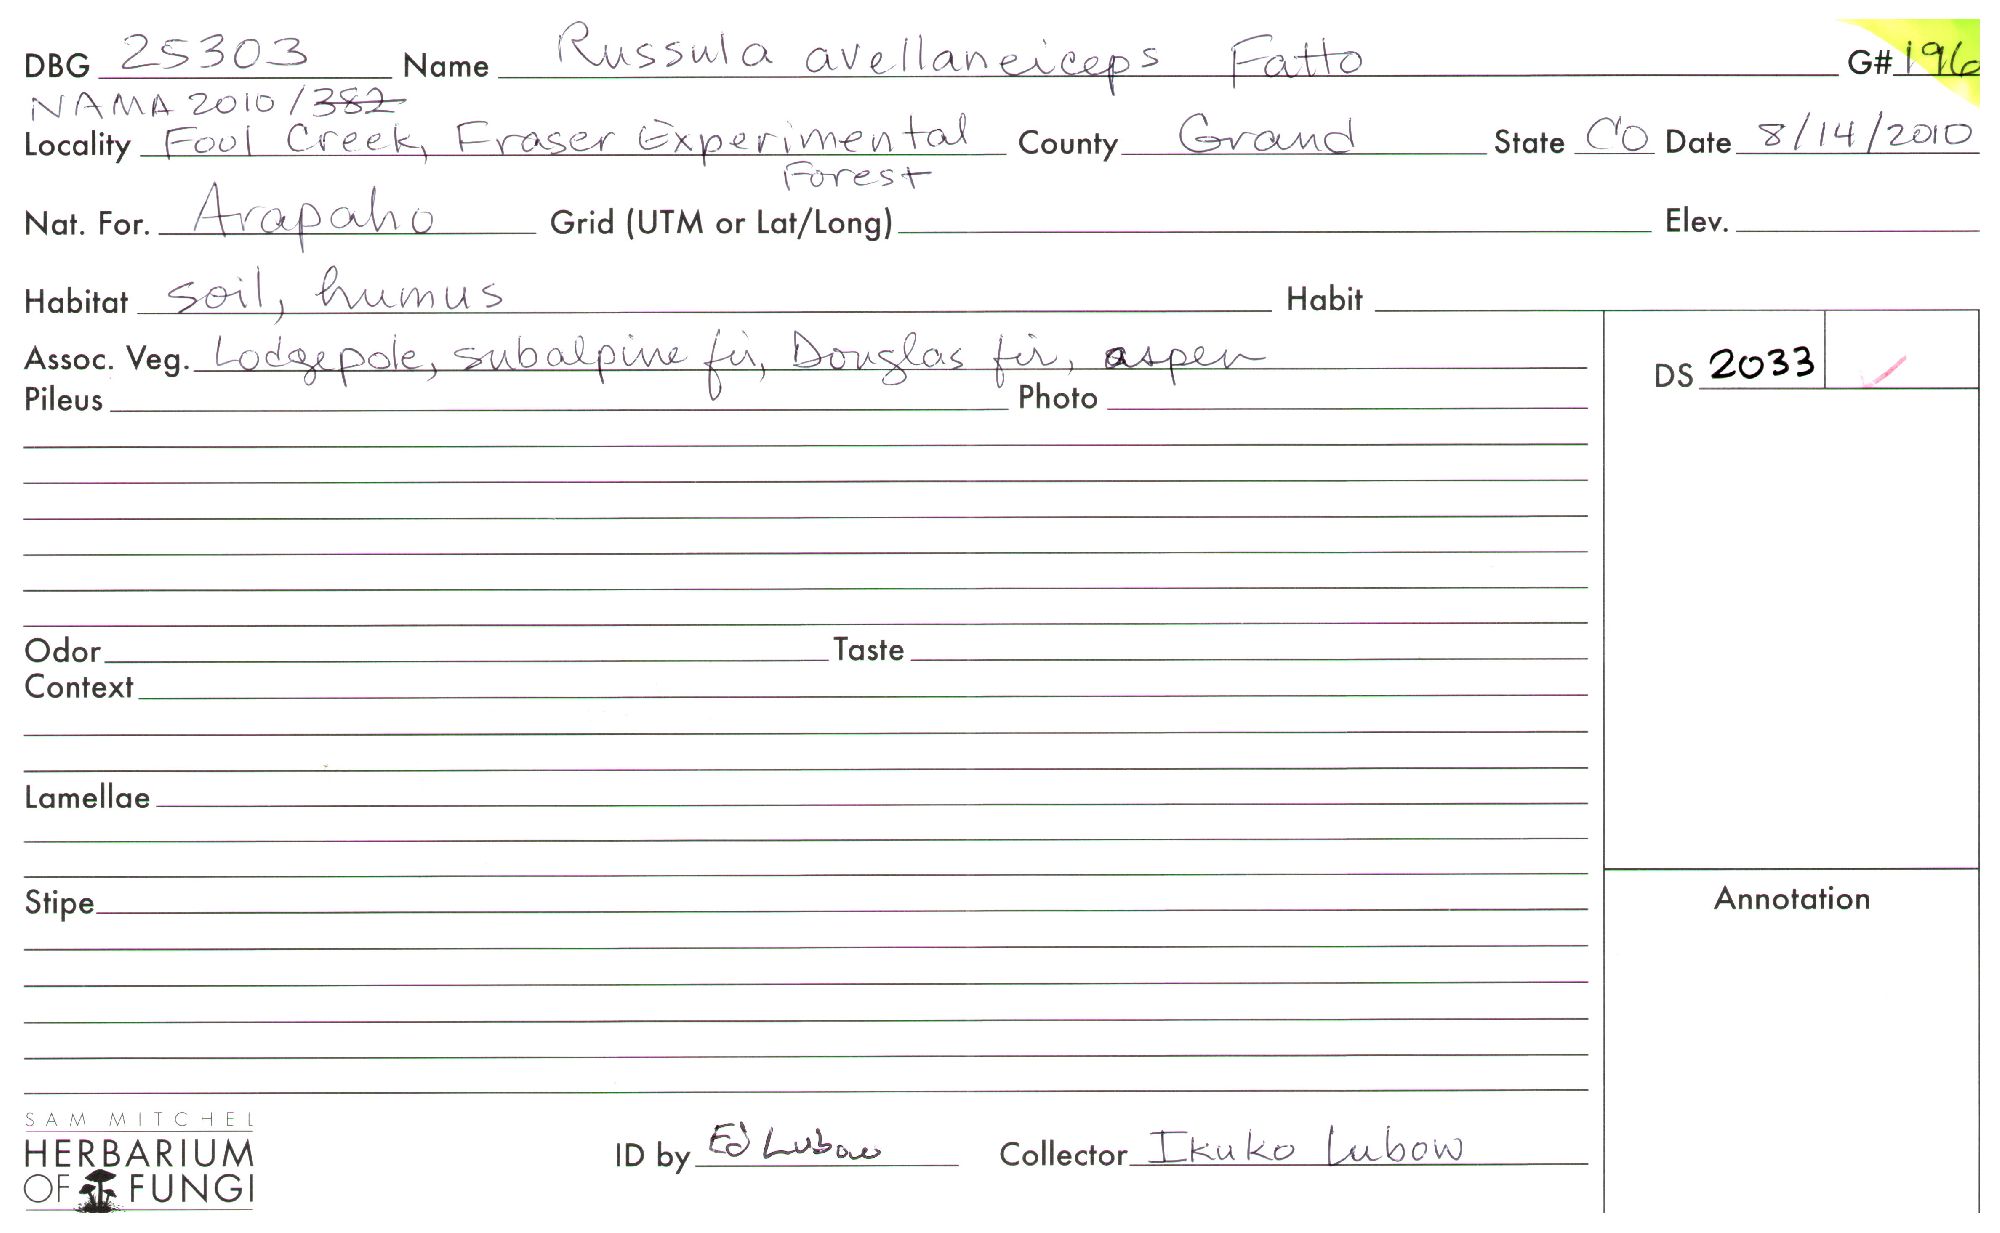 DBG 25303 Name Russula avellaneiceps Fatto G# 196
NAMA 2010 / 382
Locality Fool Creek, Fraser Experimental County Grand State CO Date 8/14/2010
Forest
Nat. For. Arapaho Grid (UTM or Lat/Long) Elev.
Habitat soil, humus Habit
Assoc. Veg. Lodgepole, subalpine fir, Douglas fir, aspen
DS 2033
Pileus Photo
Odor Taste
Context
Lamellae
Stipe
Annotation
SAM MITCHEL
HERBARIUM
OF FUNGI
ID by Ed Lubow Collector Ikuko Lubow